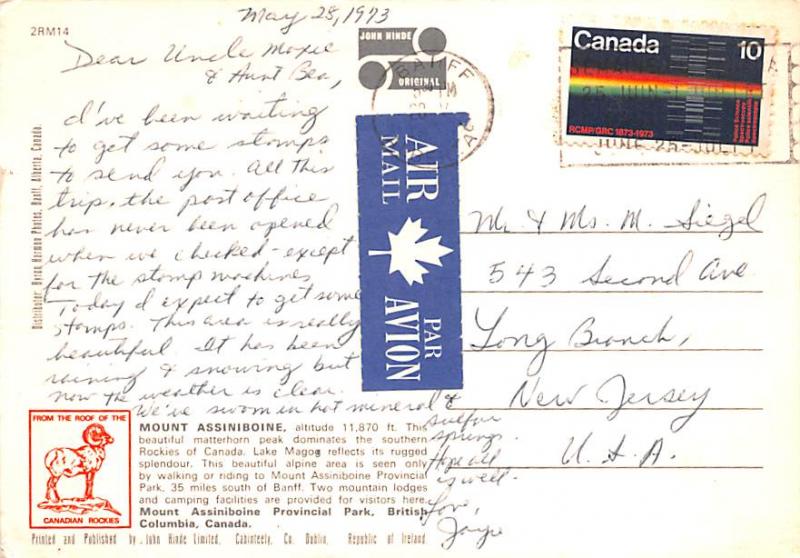 2RM14
May 25, 1973
JOHN HINDE
ORIGINAL
Dear Uncle Moxie
& Aunt Bea,
I've been waiting
to get some stamps
to send you. All this
trip, the post office
has never been opened
when we checked - except
for the stamp machines
Today I expect to get some
stamps. This area is really
beautiful. It has been
raining & snowing but
now the weather is clear.
We've swam in hot mineral &
sulfur
springs.
Hope all
is well.
Love,
Joyce
Distributor, Byron Harmon Photos, Banff, Alberta, Canada.
BANFF
Canada 10
RCMP/GRC 1873-1973
AIR
MAIL
PAR
AVION
Mr. & Ms. M. Siegel
543 Second Ave
Long Branch,
New Jersey
U.S.A.
FROM THE ROOF OF THE
CANADIAN ROCKIES
MOUNT ASSINIBOINE, altitude 11,870 ft. This
beautiful matterhorn peak dominates the southern
Rockies of Canada. Lake Magog reflects its rugged
splendour. This beautiful alpine area is seen only
by walking or riding to Mount Assiniboine Provincial
Park, 35 miles south of Banff. Two mountain lodges
and camping facilities are provided for visitors here.
Mount Assiniboine Provincial Park, British
Columbia, Canada.
Printed and Published by John Hinde Limited, Cabinteely, Co. Dublin, Republic of Ireland